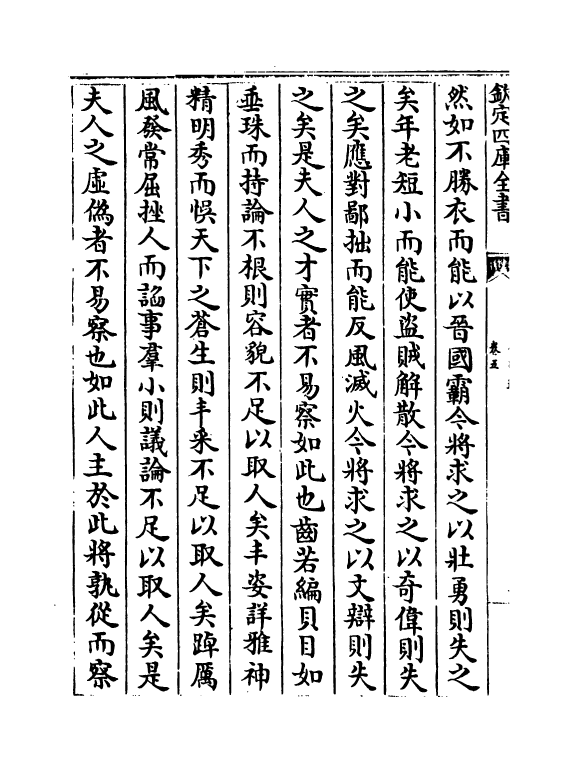 欽定四庫全書
卷五
然如不勝衣而能以晉國霸今將求之以壯勇則失之
矣年老短小而能使盜賊解散今將求之以奇偉則失
之矣應對鄙拙而能反風滅火今將求之以文辯則失
之矣是夫人之才實者不易察如此也齒若編貝目如
垂珠而持論不根則容貌不足以取人矣丰姿詳雅神
精明秀而悞天下之蒼生則丰采不足以取人矣踔厲
風發常屈挫人而謟事羣小則議論不足以取人矣是
夫人之虛偽者不易察也如此人主於此將孰從而察